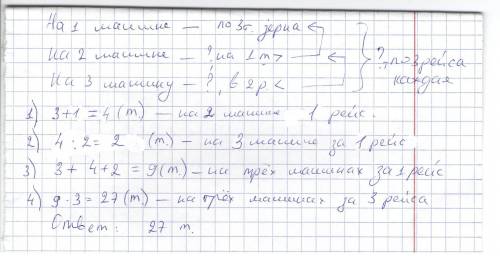 На 1 машине — по 3т зерна
На 2 машине — ? на 1 т >
На 3 машину — ?, в 2 р <
?, по 3 рейса
каждая
1) 3+1=4 (т.) — на 2 машине 1 рейс.
2) 4:2=2 (т) — на 3 машине за 1 рейс
3) 3+4+2=9(т.) — на трёх машинах за 1 рейс
4) 9·3=27 (т.) — на трёх машинах за 3 рейса
Ответ: 27 т.